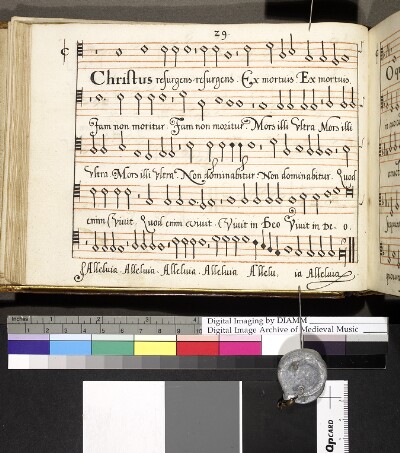 29.
Christus resurgens resurgens. Ex mortuis Ex mortuis.
Jam non moritur. Jam non moritur. Mors illi Vltra Mors illi
Vltra. Mors illi Vltra. Non dominabitur. Non dominabitur. Quod
enim Vivit. Quod enim vivit. Vivit in Deo Vivit in De. o.
Alleluia. Alleluia. Alleluia. Alleluia. Allelu, ia Alleluia
inches 1 2 3 4
Digital Imaging by DIAMM
Digital Image Archive of Medieval Music
QPCARD